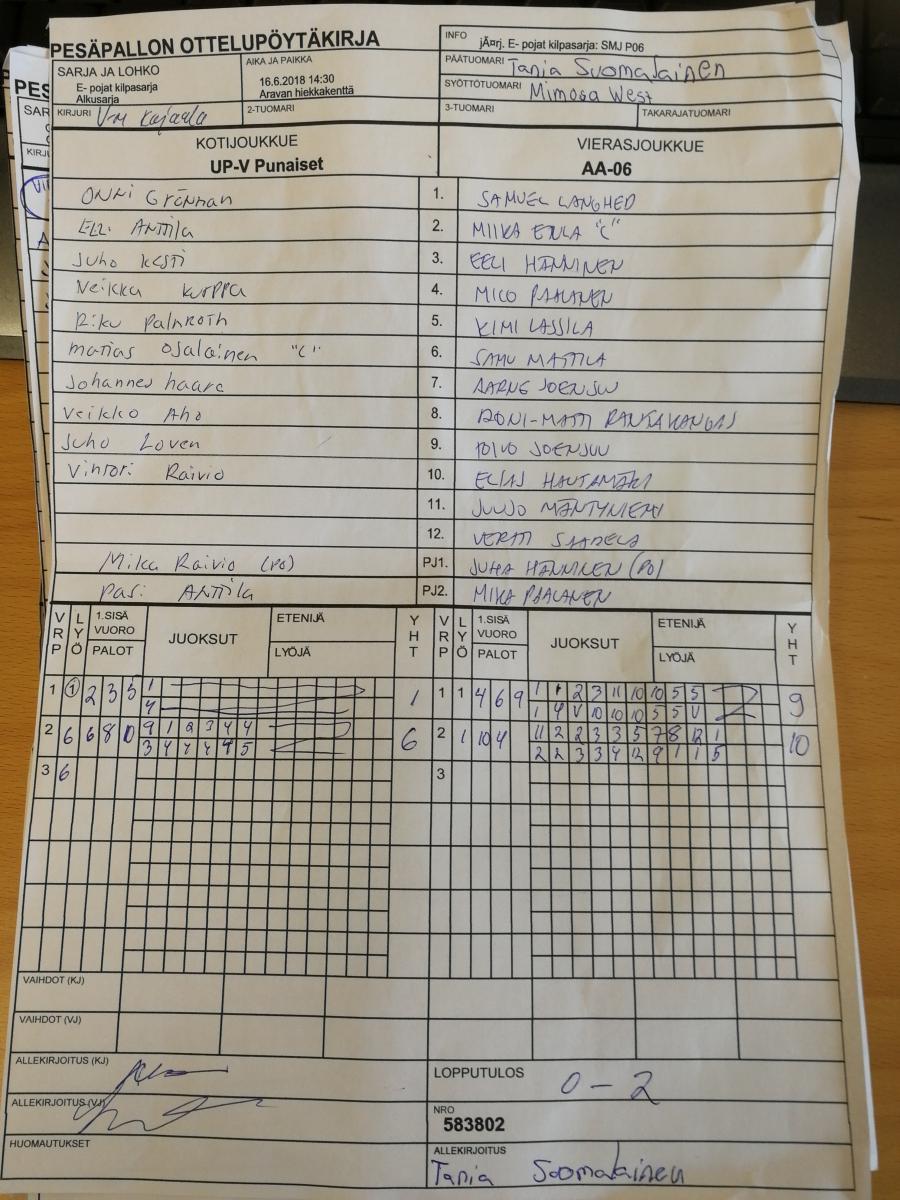 PESÄPALLON OTTELUPÖYTÄKIRJA
INFO jÃ¤rj. E- pojat kilpasarja: SMJ P06
SARJA JA LOHKO
E- pojat kilpasarja
Alkusarja
AIKA JA PAIKKA
16.6.2018 14:30
Aravan hiekkakenttä
PÄÄTUOMARI Tania Suomalainen
SYÖTTÖTUOMARI Mimosa West
KIRJURI V-M Kajaala
2-TUOMARI
3-TUOMARI
TAKARAJATUOMARI
KOTIJOUKKUE
UP-V Punaiset
VIERASJOUKKUE
AA-06
Onni Grönman 1. SAMUEL LANGHED
Eeli Anttila 2. MIIKA ERLA "C"
Juho Kesti 3. EELI HÄNNINEN
Veikka Kurppa 4. MICO PAALANEN
Riku Palnroth 5. KIMI LASSILA
Matias Ojalainen "C" 6. SAMU MATTILA
Johannes haara 7. AARNE JOENSUU
Veikko Aho 8. RONI-MATTI RANTAKANGAS
Juho Loven 9. TOIVO JOENSUU
Vinrori Raivio 10. ELIAS HAUTAMÄKI
11. JUUSO MÄNTYNIEMI
12. VERTTI SAARELA
Mika Raivio (PO) PJ1. JUHA HÄNNINEN (PO)
Pasi ANTTILA PJ2. MIKA PAALANEN
VRP LYÖ 1.SISÄ VUORO PALOT JUOKSUT ETENIJÄ LYÖJÄ YHT VRP LYÖ 1.SISÄ VUORO PALOT JUOKSUT ETENIJÄ LYÖJÄ YHT
1 1 2 3 5 1 1 1 1 4 6 9 1 1 2 3 11 10 10 5 5 9
4 1 4 V 10 10 10 5 5 V
2 6 6 8 10 9 1 2 3 4 4 6 2 1 10 4 11 2 2 3 3 5 7 8 12 1 10
3 4 4 4 4 5 2 2 3 3 4 12 9 1 1 5
3 6 3
VAIHDOT (KJ)
VAIHDOT (VJ)
ALLEKIRJOITUS (KJ)
LOPPUTULOS 0 - 2
ALLEKIRJOITUS (VJ)
NRO
583802
HUOMAUTUKSET
ALLEKIRJOITUS
Tania Suomalainen